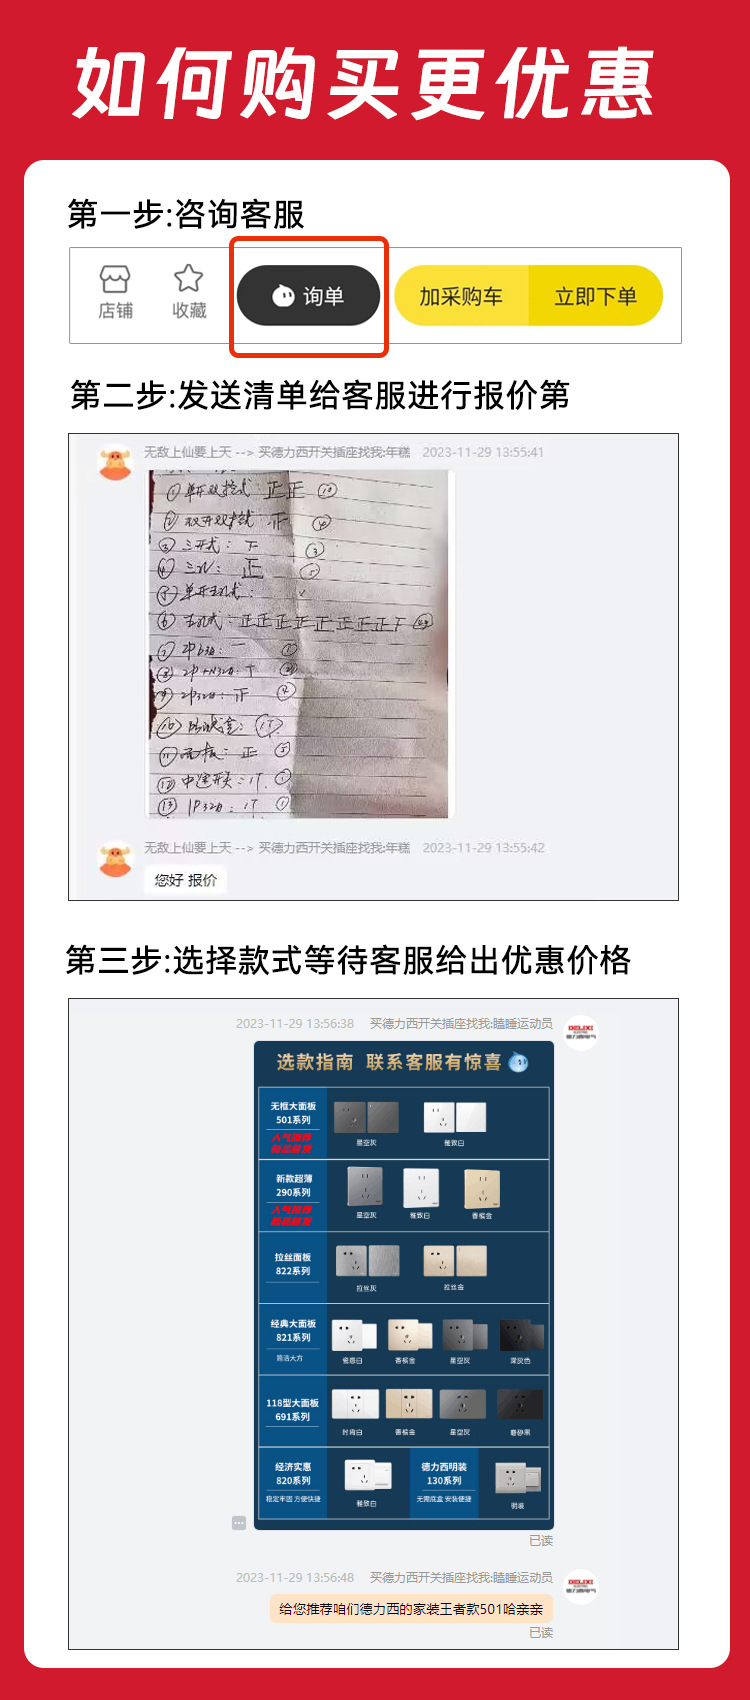 如何购买更优惠
第一步:咨询客服
店铺
收藏
询单
加采购车
立即下单
第二步:发送清单给客服进行报价第
无敌上仙要上天 --> 买德力西开关插座找我:年糕 2023-11-29 13:55:41
①单开双控式: 正正 ⑩
②双开双控式 正 ④
③三开式: 下 ③
④三孔: 正 ⑤
⑤单开五孔式:
⑥五孔式: 正正正正正正正正下
⑦2P63a: 一 ①
⑧2P+N32a: 丅 ②
⑨2P32a: 正 ④
⑪面板: 正 ⑤
⑫中途开关: 1丅 ①
⑬1P32a: 1丅 ①
无敌上仙要上天 --> 买德力西开关插座找我:年糕 2023-11-29 13:55:42
您好 报价
第三步:选择款式等待客服给出优惠价格
2023-11-29 13:56:38 买德力西开关插座找我:瞌睡运动员
DELIXI
选款指南 联系客服有惊喜
无框大面板
501系列
人气推荐
星空灰
雅致白
新款超薄
290系列
人气推荐
星空灰
雅致白
香槟金
拉丝面板
822系列
拉丝灰
拉丝金
经典大面板
821系列
简洁大方
瓷恩白
香槟金
星空灰
深灰色
118型大面板
691系列
时尚白
香槟金
星空灰
磨砂黑
经济实惠
820系列
稳定牢固 方便快捷
雅致白
德力西明装
130系列
无需底盒 安装便捷
明装
已读
2023-11-29 13:56:48 买德力西开关插座找我:瞌睡运动员
DELIXI
给您推荐咱们德力西的家装王者款501哈亲亲
已读